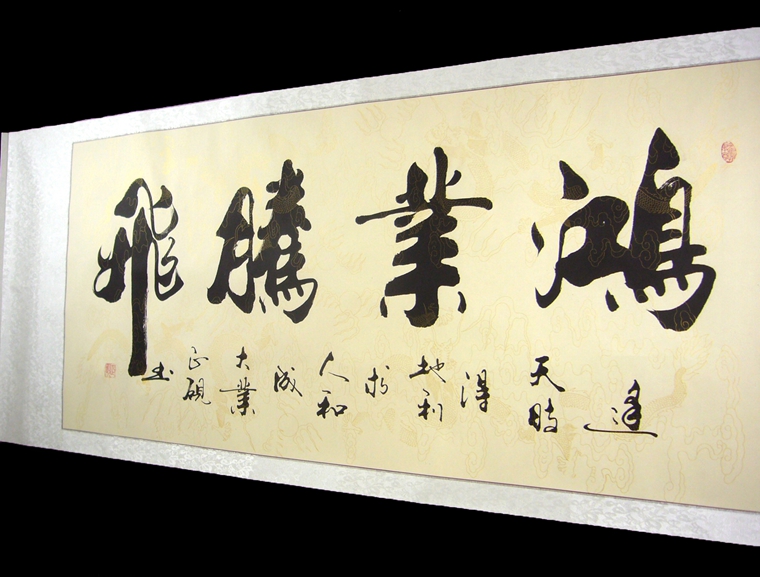 鴻業騰飛
逢天時得地利求人和成大業
正硯书